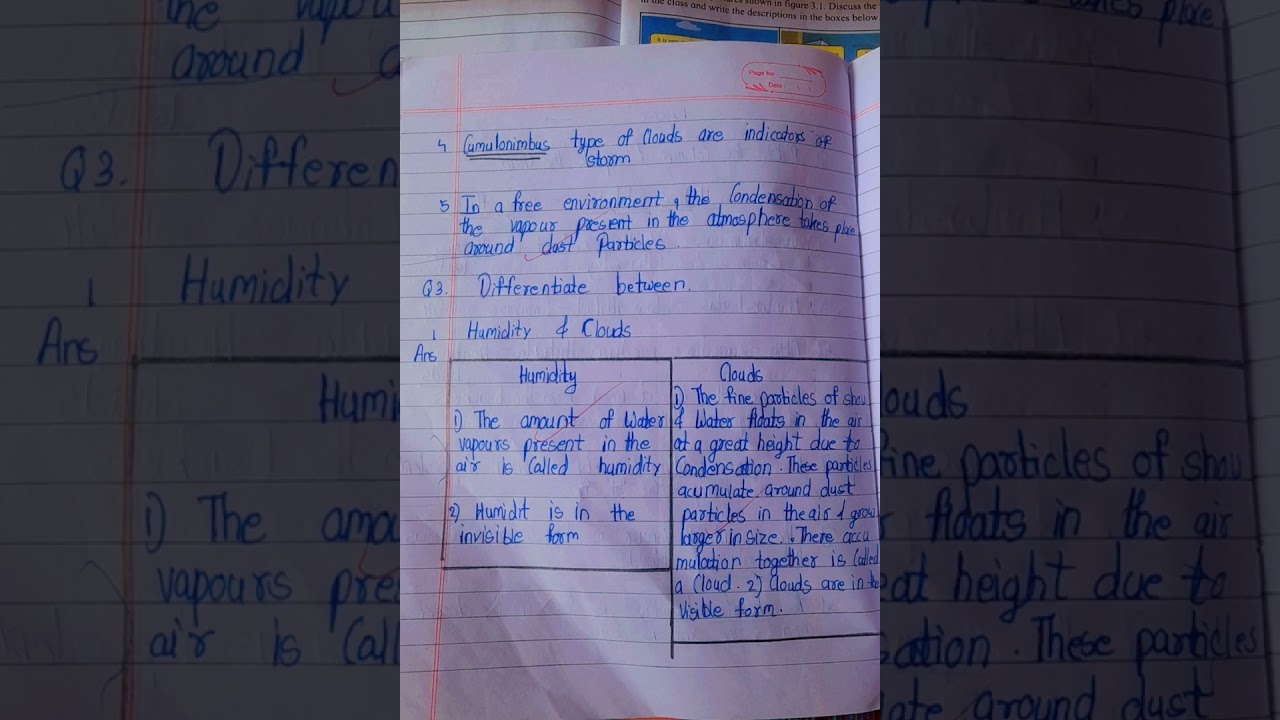 in the class and write the descriptions in the boxes below
shown in figure 3.1. Discuss the
Page No
Date
4 Camulonimbus type of Clouds are indicators of
storm
5 In a free environment, the Condensation of
the vapour present in the atmosphere takes place
around dust Particles.
Q3. Differentiate between.
1 Humidity & Clouds
Ans
Humidity
1) The amount of Water
vapours present in the
air is Called humidity
2) Humidt is in the
invisible form
Clouds
1) The fine particles of show
& Water floats in the air
at a great height due to
Condensation. These particles
acumulate around dust
particles in the air & grow
larger in size. There accu
mulation together is Called
a Cloud. 2) Clouds are in the
Visible form.